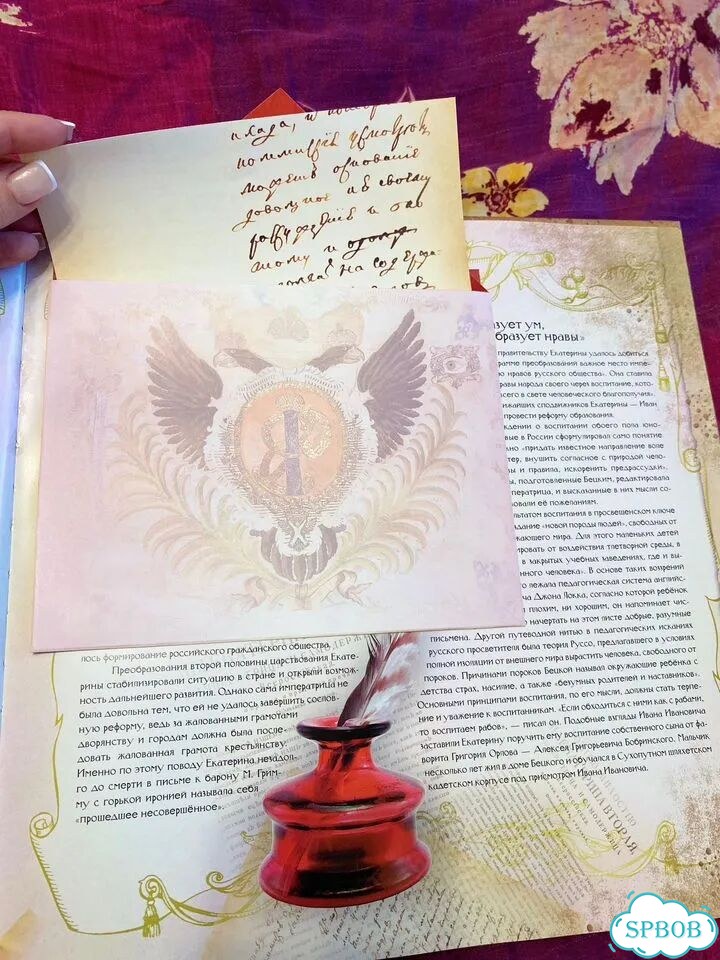 можетъ
на содержа
лось формирование российского гражданского общества.
Преобразования второй половины царствования Екате-
рины стабилизировали ситуацию в стране и открыли возмож-
ность дальнейшего развития. Однако сама императрица не
была довольна тем, что ей не удалось завершить сослов-
ную реформу, ведь за жалованными грамотами
дворянству и городам должна была после-
довать жалованная грамота крестьянству.
Именно по этому поводу Екатерина незадол-
го до смерти в письме к барону М. Грим-
му с горькой иронией называла себя
«прошедшее несовершённое».
зует ум,
бразует нравы»
правительству Екатерины удалось добиться
грамме преобразований важное место импе-
ю нравов русского общества». Она ставила
равы народа своего через воспитание, кото-
сего в свете человеческого благополучия».
ижайших сподвижников Екатерины — Иван
провести реформу образования.
ждении о воспитании обоего пола юно-
вые в России сформулировал само понятие
но «придать известное направление воле
тер, внушить согласное с природой чело-
вы и правила, искоренить предрассудки».
ы, подготовленные Бецким, редактировала
ператрица, и высказанные в них мысли со-
овали её пожеланиям.
льтатом воспитания в просвещенском ключе
дание «новой породы людей», свободных от
жающего мира. Для этого маленьких детей
ровать от воздействия тлетворной среды, в
в закрытых учебных заведениях, где и вы-
нного человека». В основе таких воззрений
лежала педагогическая система английс-
ча Джона Локка, согласно которой ребёнок
плохим, ни хорошим, он напоминает чис-
начертать на этом листе добрые, разумные
письмена. Другой путеводной нитью в педагогических исканиях
русского просветителя была теория Руссо, предлагавшего в условиях
полной изоляции от внешнего мира вырастить человека, свободного от
пороков. Причинами пороков Бецкой называл окружающие ребёнка с
детства страх, насилие, а также «безумных родителей и наставников».
Основными принципами воспитания, по его мысли, должны стать терпе-
ние и уважение к воспитанникам. «Если обходиться с ними как с рабами,
то воспитаем рабов», — писал он. Подобные взгляды Ивана Ивановича
заставили Екатерину поручить ему воспитание собственного сына от фа-
ворита Григория Орлова — Алексея Григорьевича Бобринского. Мальчик
несколько лет жил в доме Бецкого и обучался в Сухопутном шляхетском
кадетском корпусе под присмотром Ивана Ивановича.
SPBOB